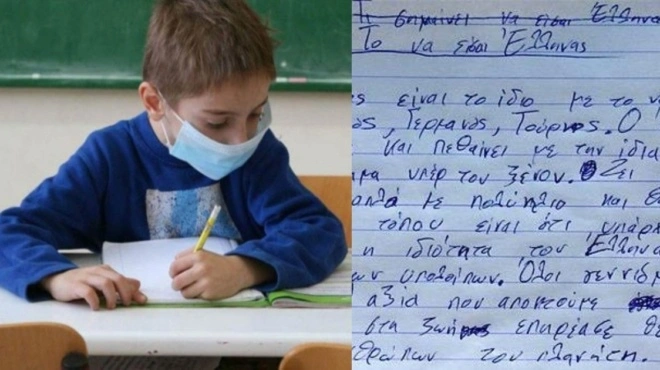 Τι σημαίνει να είσαι Έλληνας
Το να είσαι Έλληνας
είναι το ίδιο με το ν
Γερμανός, Τούρκος. Ο
και πεθαίνει με την ίδια
υπέρ του ξένου. Ζει
με πολύπλο και θ
τόπου είναι ότι υπάρχ
η ιδιότητα του Έλλην
υπολοίπων. Όλοι γεννιό
αξία που αποκτούμε
στα ζωή επηρέασε θε
θρώπων του πλανήτη.